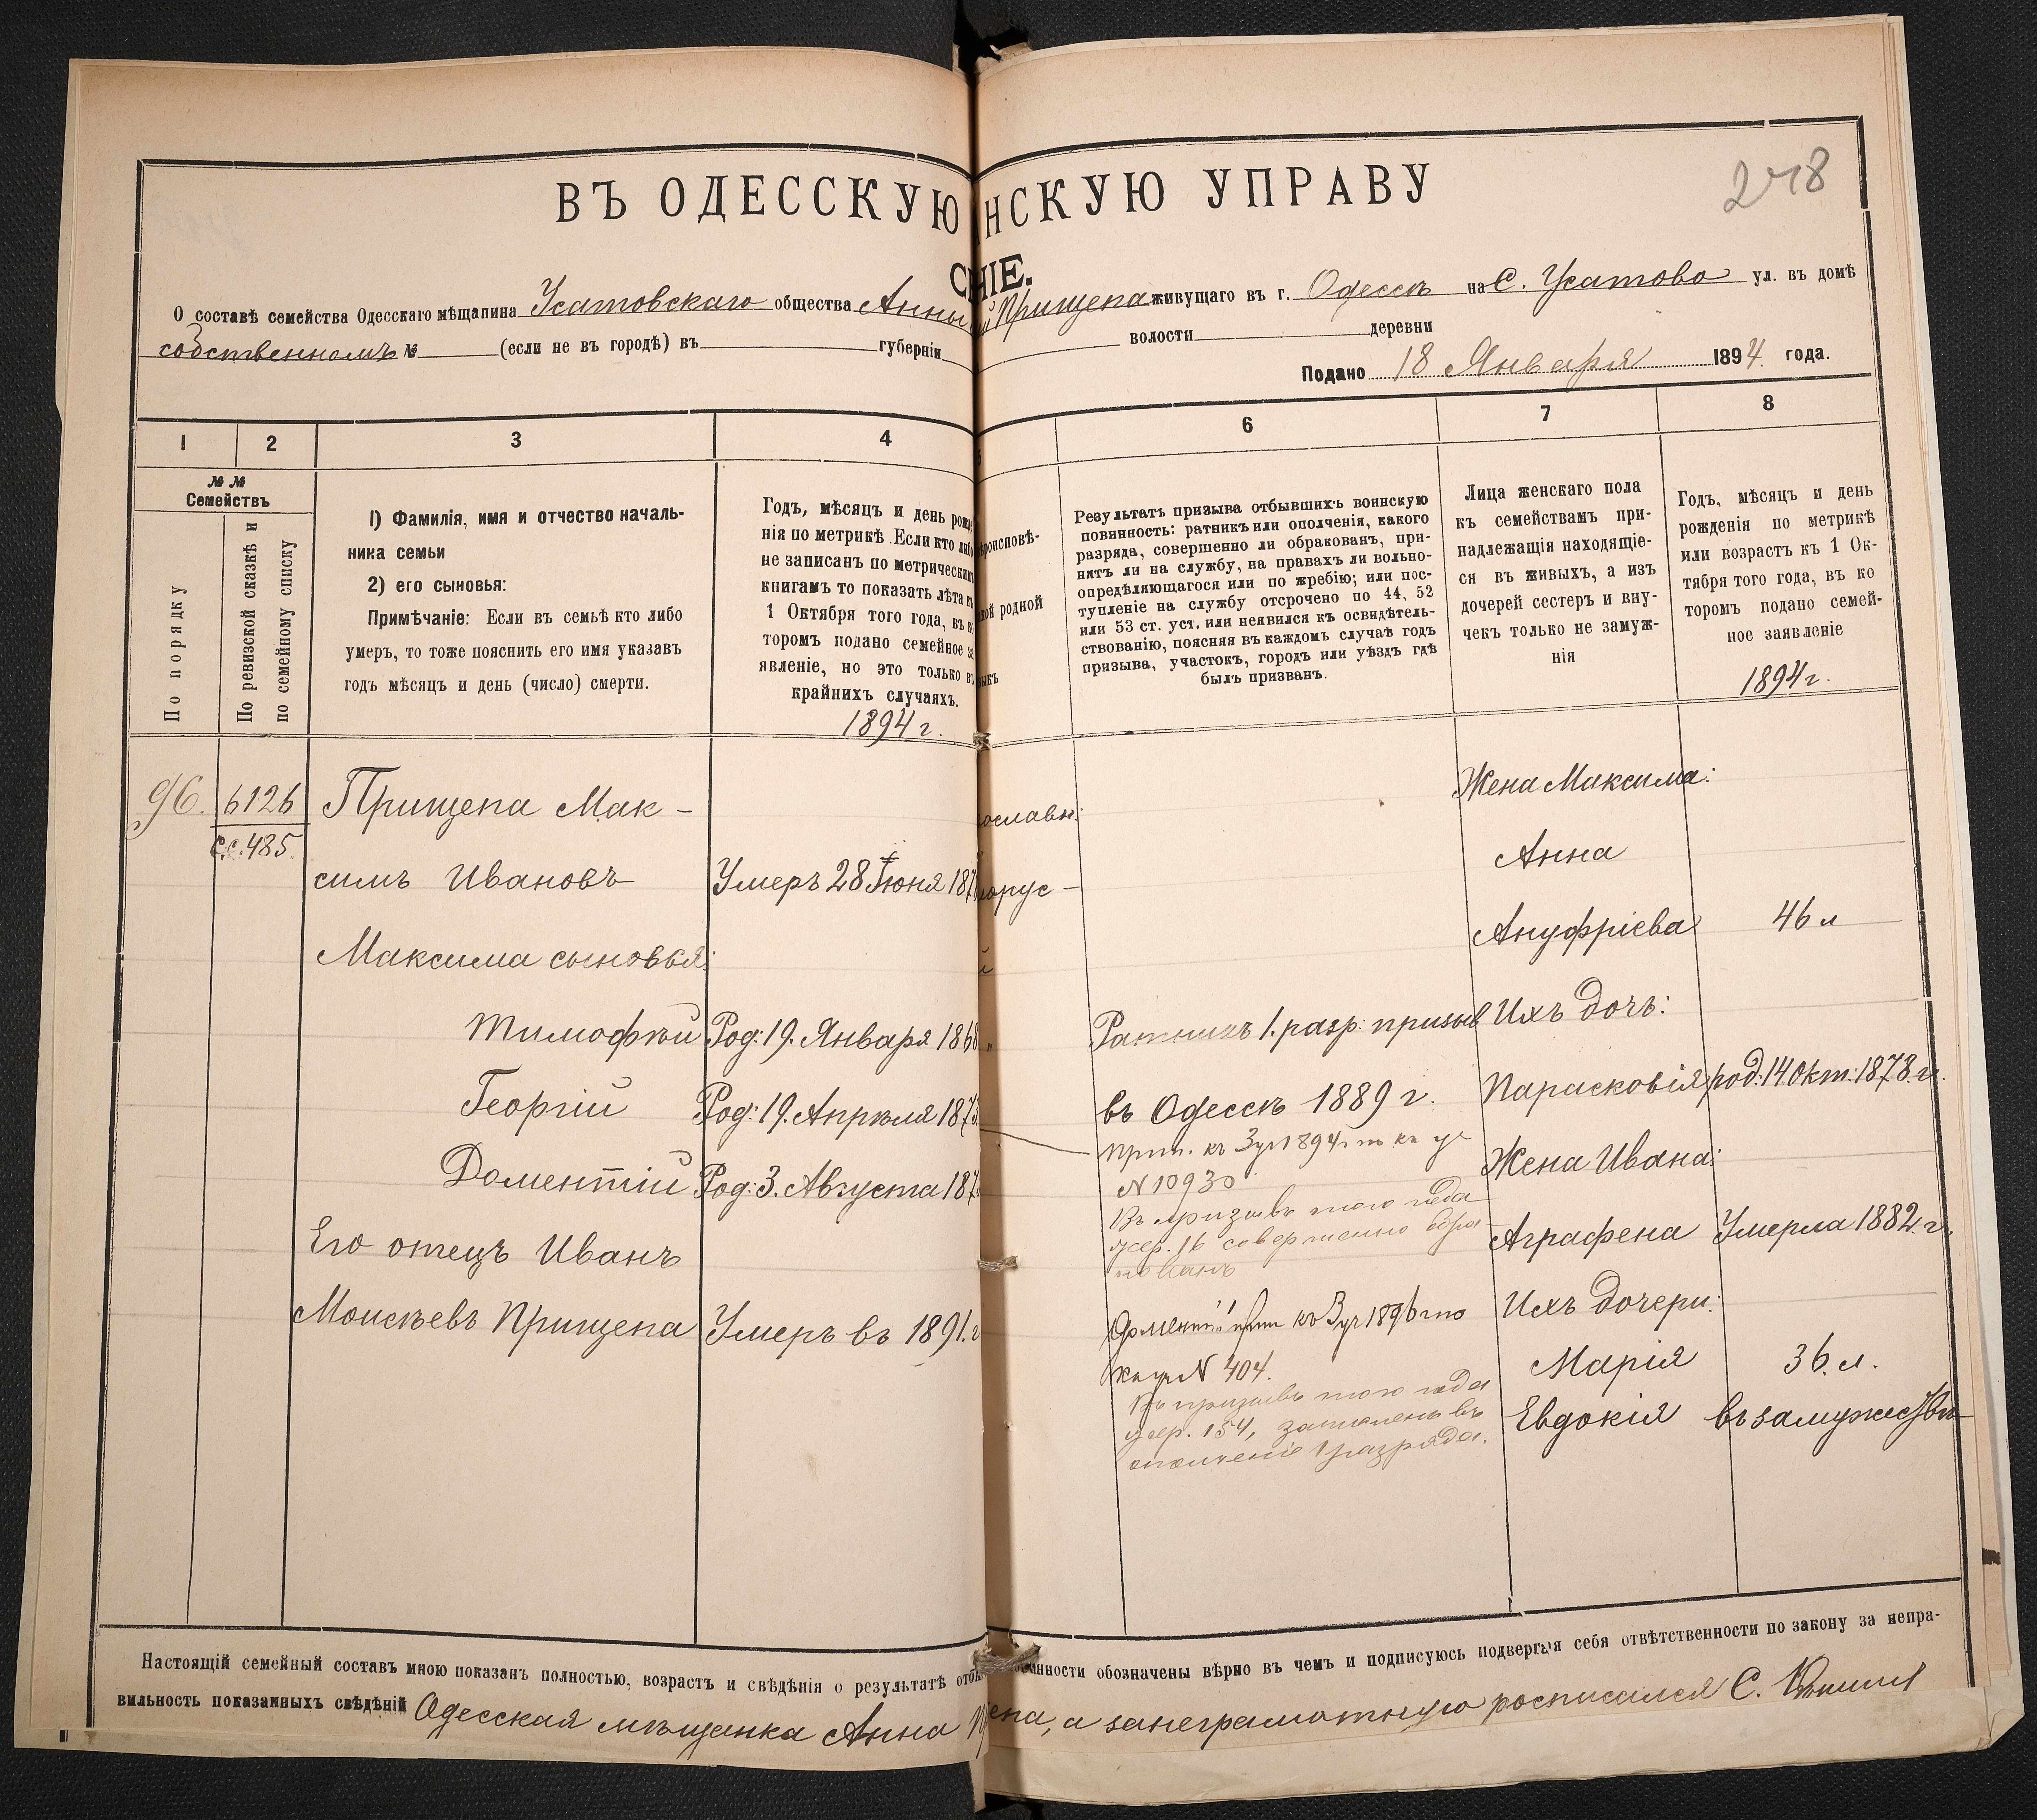 278
ВЪ ОДЕССКУЮ НСКУЮ УПРАВУ
СНІЕ.
О составѣ семейства Одесскаго мѣщанина Усатовскаго общества Анны Прищепа живущаго въ г. Одессѣ на С. Усатово ул. въ домѣ
собственномъ № (если не въ городѣ) въ губерніи волости деревни
Подано 18 Января 1894. года.
1 2 3 4 6 7 8
№ №
Семействъ
По порядку
По ревизской сказкѣ и
по семейному списку
1) Фамилія, имя и отчество началь-
ника семьи
2) его сыновья:
Примѣчаніе: Если въ семьѣ кто либо
умеръ, то тоже пояснить его имя указавъ
годъ мѣсяцъ и день (число) смерти.
Годъ, мѣсяцъ и день рожде
нія по метрикѣ. Если кто либо
не записанъ по метрическимъ
книгамъ то показать лѣта къ
1 Октября того года, въ ко
торомъ подано семейное за
явленіе, но это только въ
крайнихъ случаяхъ.
1894 г.
роисповѣ-
ой родной
ыкъ
Результатъ призыва отбывшихъ воинскую
повинность: ратникъ или ополченія, какого
разряда, совершенно ли обракованъ, при-
нятъ ли на службу, на правахъ ли вольно-
опредѣляющагося или по жребію; или пос-
тупленіе на службу отсрочено по 44, 52
или 53 ст. уст. или неявился къ освидѣтель-
ствованію, поясняя въ каждомъ случаѣ годъ
призыва, участокъ, городъ или уѣздъ гдѣ
былъ призванъ.
Лица женскаго пола
къ семействамъ при-
надлежащія находящіе-
ся въ живыхъ, а изъ
дочерей сестеръ и вну-
чекъ только не замуж-
нія
Годъ, мѣсяцъ и день
рожденія по метрикѣ
или возрастъ къ 1 Ок-
тября того года, въ ко
торомъ подано семей-
ное заявленіе
1894 г.
96. 6126 Прищепа Мак-
с.с. 485.
симъ Ивановъ Умеръ 28 Іюня 187
Максима сыновья:
Тимофѣй Род: 19. Января 1868
Георгій Род: 19. Апрѣля 187
Доментій Род: 3. Августа 187
Его отецъ Иванъ
Моисѣевъ Прищепа Умеръ въ 1891. г
ославн:
орус-
й
Ратникъ 1. разр: призыв
въ Одессѣ 1889 г.
прип. къ 3 уч 1894 г
N 10930
Въ призывъ того года
жер. 16 совершенно
къ 3 уч 1896 г по
N 404.
Въ призывъ того года
жер. 154, зачисленъ въ
ополченіе 1 разряда.
Жена Максима:
Анна
Ануфріева 46 л
Ихъ дочь:
Парасковія род: 14 Окт: 1878. г.
Жена Ивана:
Аграфена Умерла 1882. г.
Ихъ дочери:
Марія 36. л.
Евдокія въ замужествѣ
Настоящій семейный составъ мною показанъ полностью, возрастъ и свѣдѣнія о результатѣ отбы нности обозначены вѣрно въ чемъ и подписуюсь подвергая себя отвѣтственности по закону за непра-
вильность показанныхъ свѣдѣній Одесская мѣщанка Анна епа, а занеграмотную росписался С.